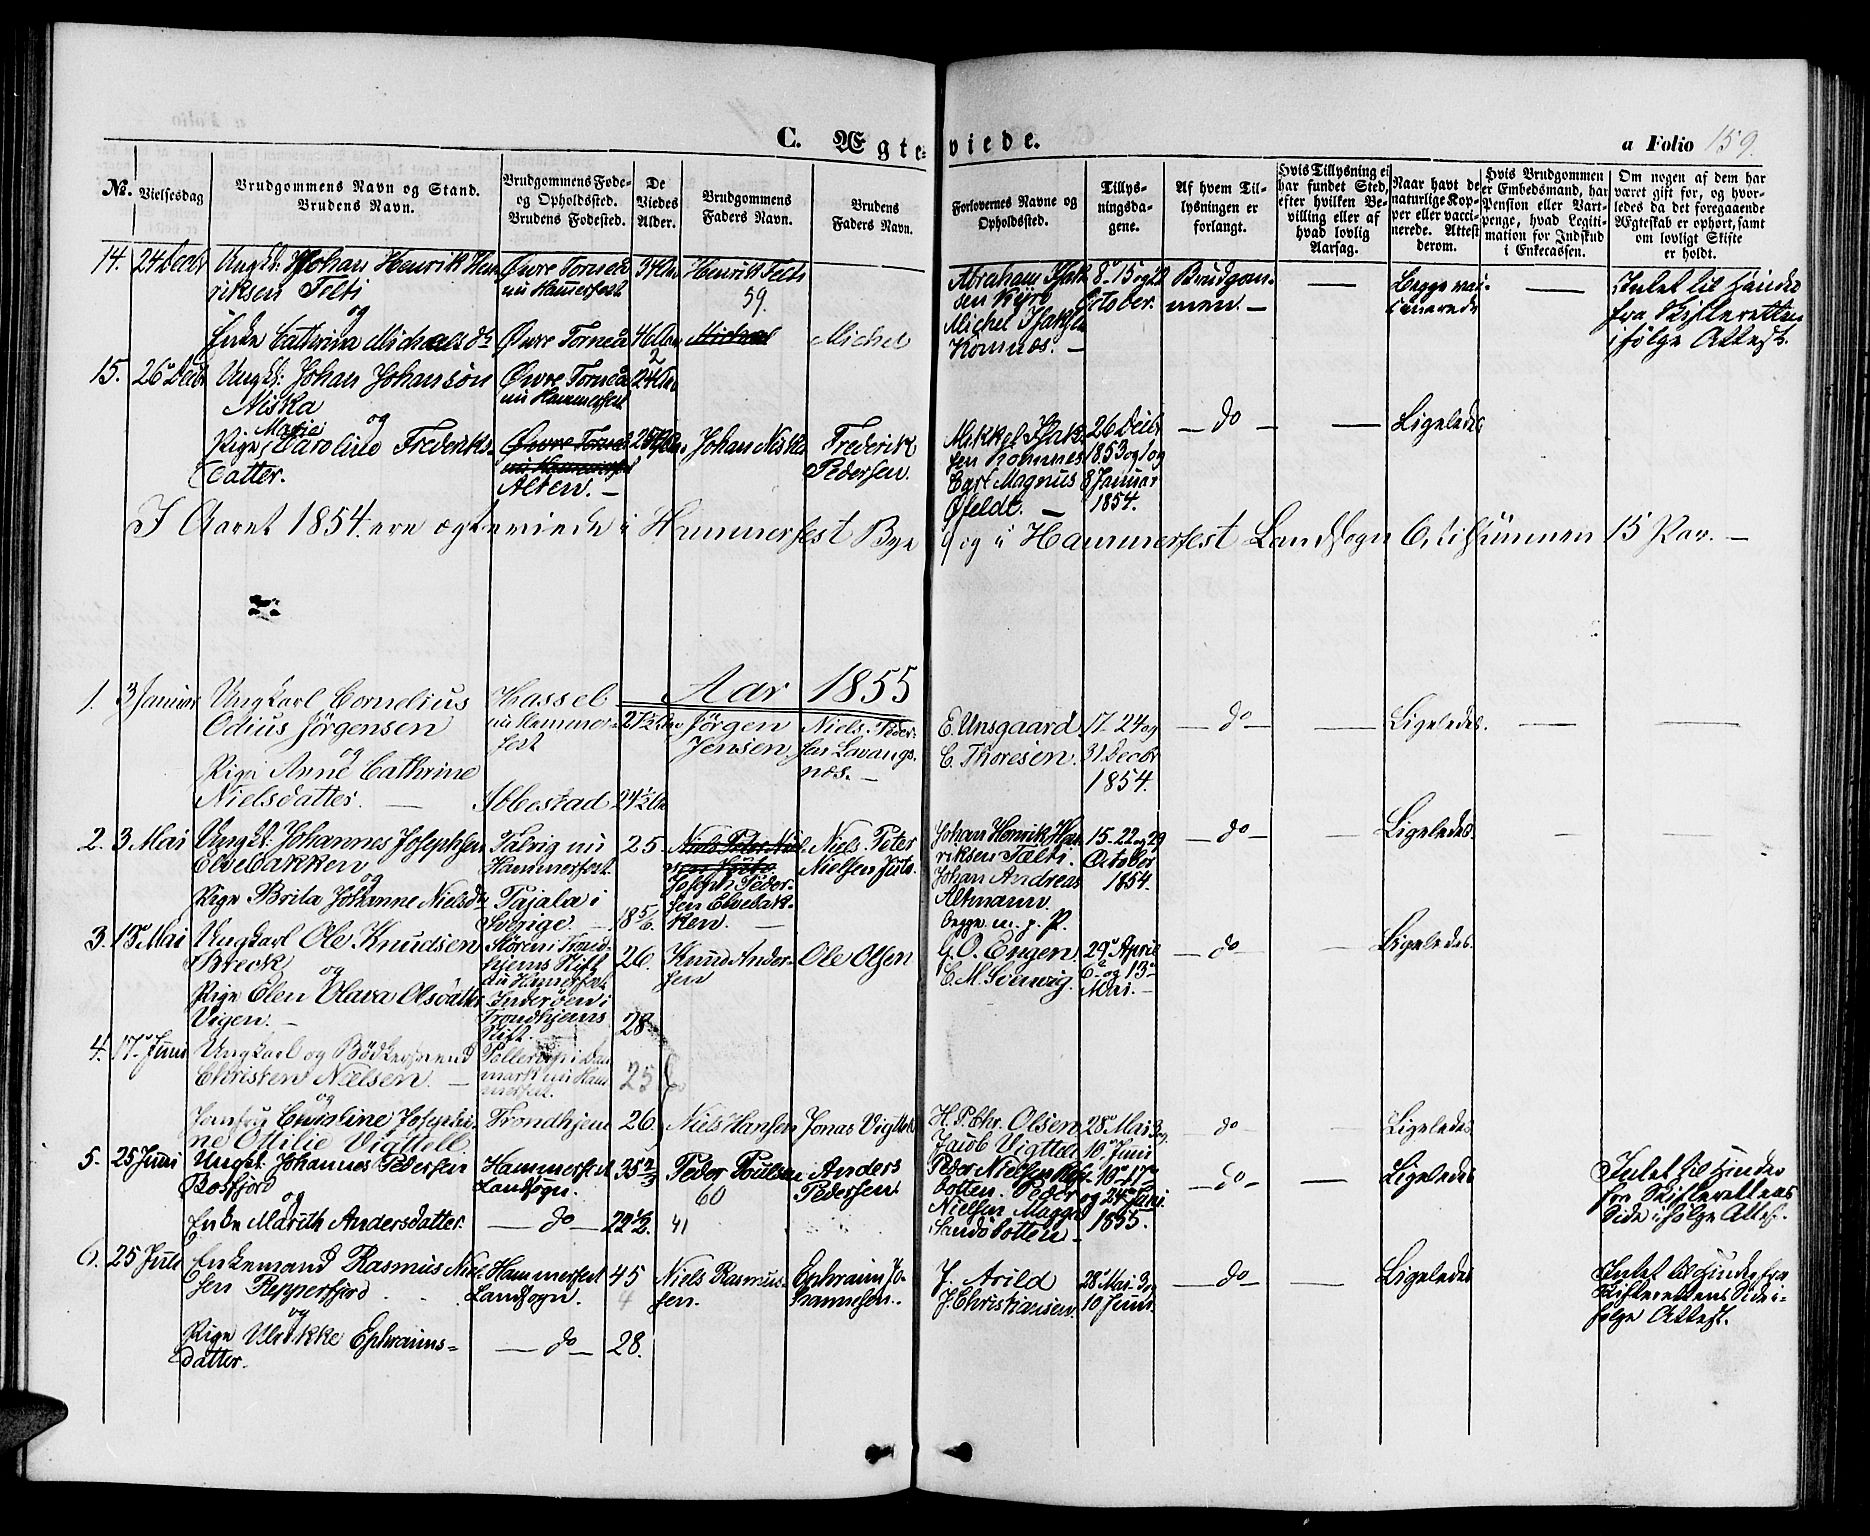 C. Ægteviede.
a Folio 159.
No.
Vielsesdag
Brudgommens Navn og Stand.
Brudens Navn.
Brudgommens Føde-
og Opholdssted.
Brudens Fødested.
De
Viedes
Alder.
Brudgommens
Faders Navn.
Brudens
Faders Navn.
Forlovernes Navne og
Opholdssted.
Tillys-
ningsda-
gene.
Af hvem Til-
lysningen er
forlangt.
Hvis Tillysning ei
har fundet Sted,
efter hvilken Be-
villing eller af
hvad lovlig
Aarsag.
Naar havt de
naturlige Kop-
per eller vacci-
nerede. Attest
derom.
Hvis Brudgommen
er Embedsmand, har
Pension eller Vart-
penge, hvad Legiti-
mation for Indskud
i Enkecassen.
Om nogen af dem har
været gift før, og hvor-
ledes da det foregaaende
Ægteskab er ophørt, samt
om lovligt Skifte
er holdt.
14. 24 Decbr
Ungk: Johan Henrik Hen
riksen Felti
og
Enke Cathrina Michaels dr
Øvre Torneå
nu Hammerfest
Øvre Torneå
34
46
2
Henrik Felti
59.
Michael
Michel
Abraham Isak
sen Kyrö
Michel Isaksen
Komnæs. —
8 - 15 og 22
October.
Brudgom-
men. —
Begge vac-
cinerede
Intet til Hinder
fra Skifteretten
ifølge Attest.
15. 26 Decbr
Ungk: Johan Johansøn
Niska
og
Marie
Pige Caroline Frederiks-
datter.
Øvre Torneå
nu Hammerfest
Øvre Torneå
nu Hammerfest
Alten. —
24
25
Johan Niska
Frederik
Pedersen.
Mikkel Isak-
sen Komnes
Carl Magnus
Øfeldt. —
26 Decbr
1853 og 1 og
8 Januar
1854.
— do —
Ligeledes
I Aaret 1854. ere ægteviede i Hammerfest Bye og i Hammerfest Landsogn tilsammen 15 Par. —
Aar 1855
1. 3 Januar
Ungkarl Cornelius
Odius Jörgensen
og
Pige Anne Cathrine
Nielsdatter. —
Hassel
nu Hammer-
fest
Ibbestad
27½
24½
Jørgen
Jensen
Niels Peder-
sen Lavangs-
næs. —
E. Unsgaard
C. Thoresen
17- 24 og
31 Decbr
1854.
— do —
Ligeledes.
2. 3 Mai
Ungk: Johannes Josephsen
Elvebakken
og
Pige Brita Johanne Nielsdr
Talvig nu
Hammerfest
Pajala i
Sverige.
25
18 5/6
Niels Peter Niel
sen Juto
Joseph Peder-
sen Elvebak-
ken. —
Niels Peter
Nielsen Juto.
Johan Henrik Hen
riksen Fælti.
Johan Andreas
Altmann.
begge m. p. P.
15- 22 og 29
October
1854.
— do —
Ligeledes.
3. 13 Mai
Ungkarl Ole Knudsen
Breck
og
Pige Elen Olava Olsdatter
Vigen. —
Stören i Trond-
hjems Stift
nu Hammerfest
Inderöen i
Trondhjems
Stift.
26.
28
Knud Ander-
sen
Ole Olsen
G. O. Engen.
29 April
6 og 13
Mai. —
— do —
Ligeledes.
4. 17 Juni
Ungkarl og Bødkersvend
Christen Nielsen. —
og
Jomfru Caroline Josephi-
ne Ottilie Vigtell
mark nu Ham
merfest.
Trondhjem
25
26.
Niels Hansen
Jonas Vigtell
H. P. Chr. Olsen
Jacob Vigtel
28 Mai 3 og
10 Juni
— do —
Ligeledes
5. 25 Juni
Ungk: Johannes Pedersen
Bosfjord
og
Enke Marith Andersdatter.
Hammerfest
Landsogn.
— do —
35 2/3
22½.
Peder Poulsen
60
41
Anders
Pedersen
Peder Nielsen
botten. Peder
Nielsen Magge
Sandbotten —
10 - 17
og 24 Juni
1855.
— do —
Ligeledes
Intet til Hinder
fra Skifterettens
Side ifølge Attest.
6. 25 Juli
Enkemand Rasmus Niel
sen Repperfjord
og
Pige Ulrikke Ephraims-
datter.
Hammerfest
Landsogn.
— do —
45
4
28.
Niels Rasmus-
sen.
Ephraim Jo-
hannesen.
J. Arild
J. Christiansen.
28 Mai 3 og
10 Juni.
— do —
Ligeledes
Intet til Hinder fra
Skifterettens Side i-
følge Attest.